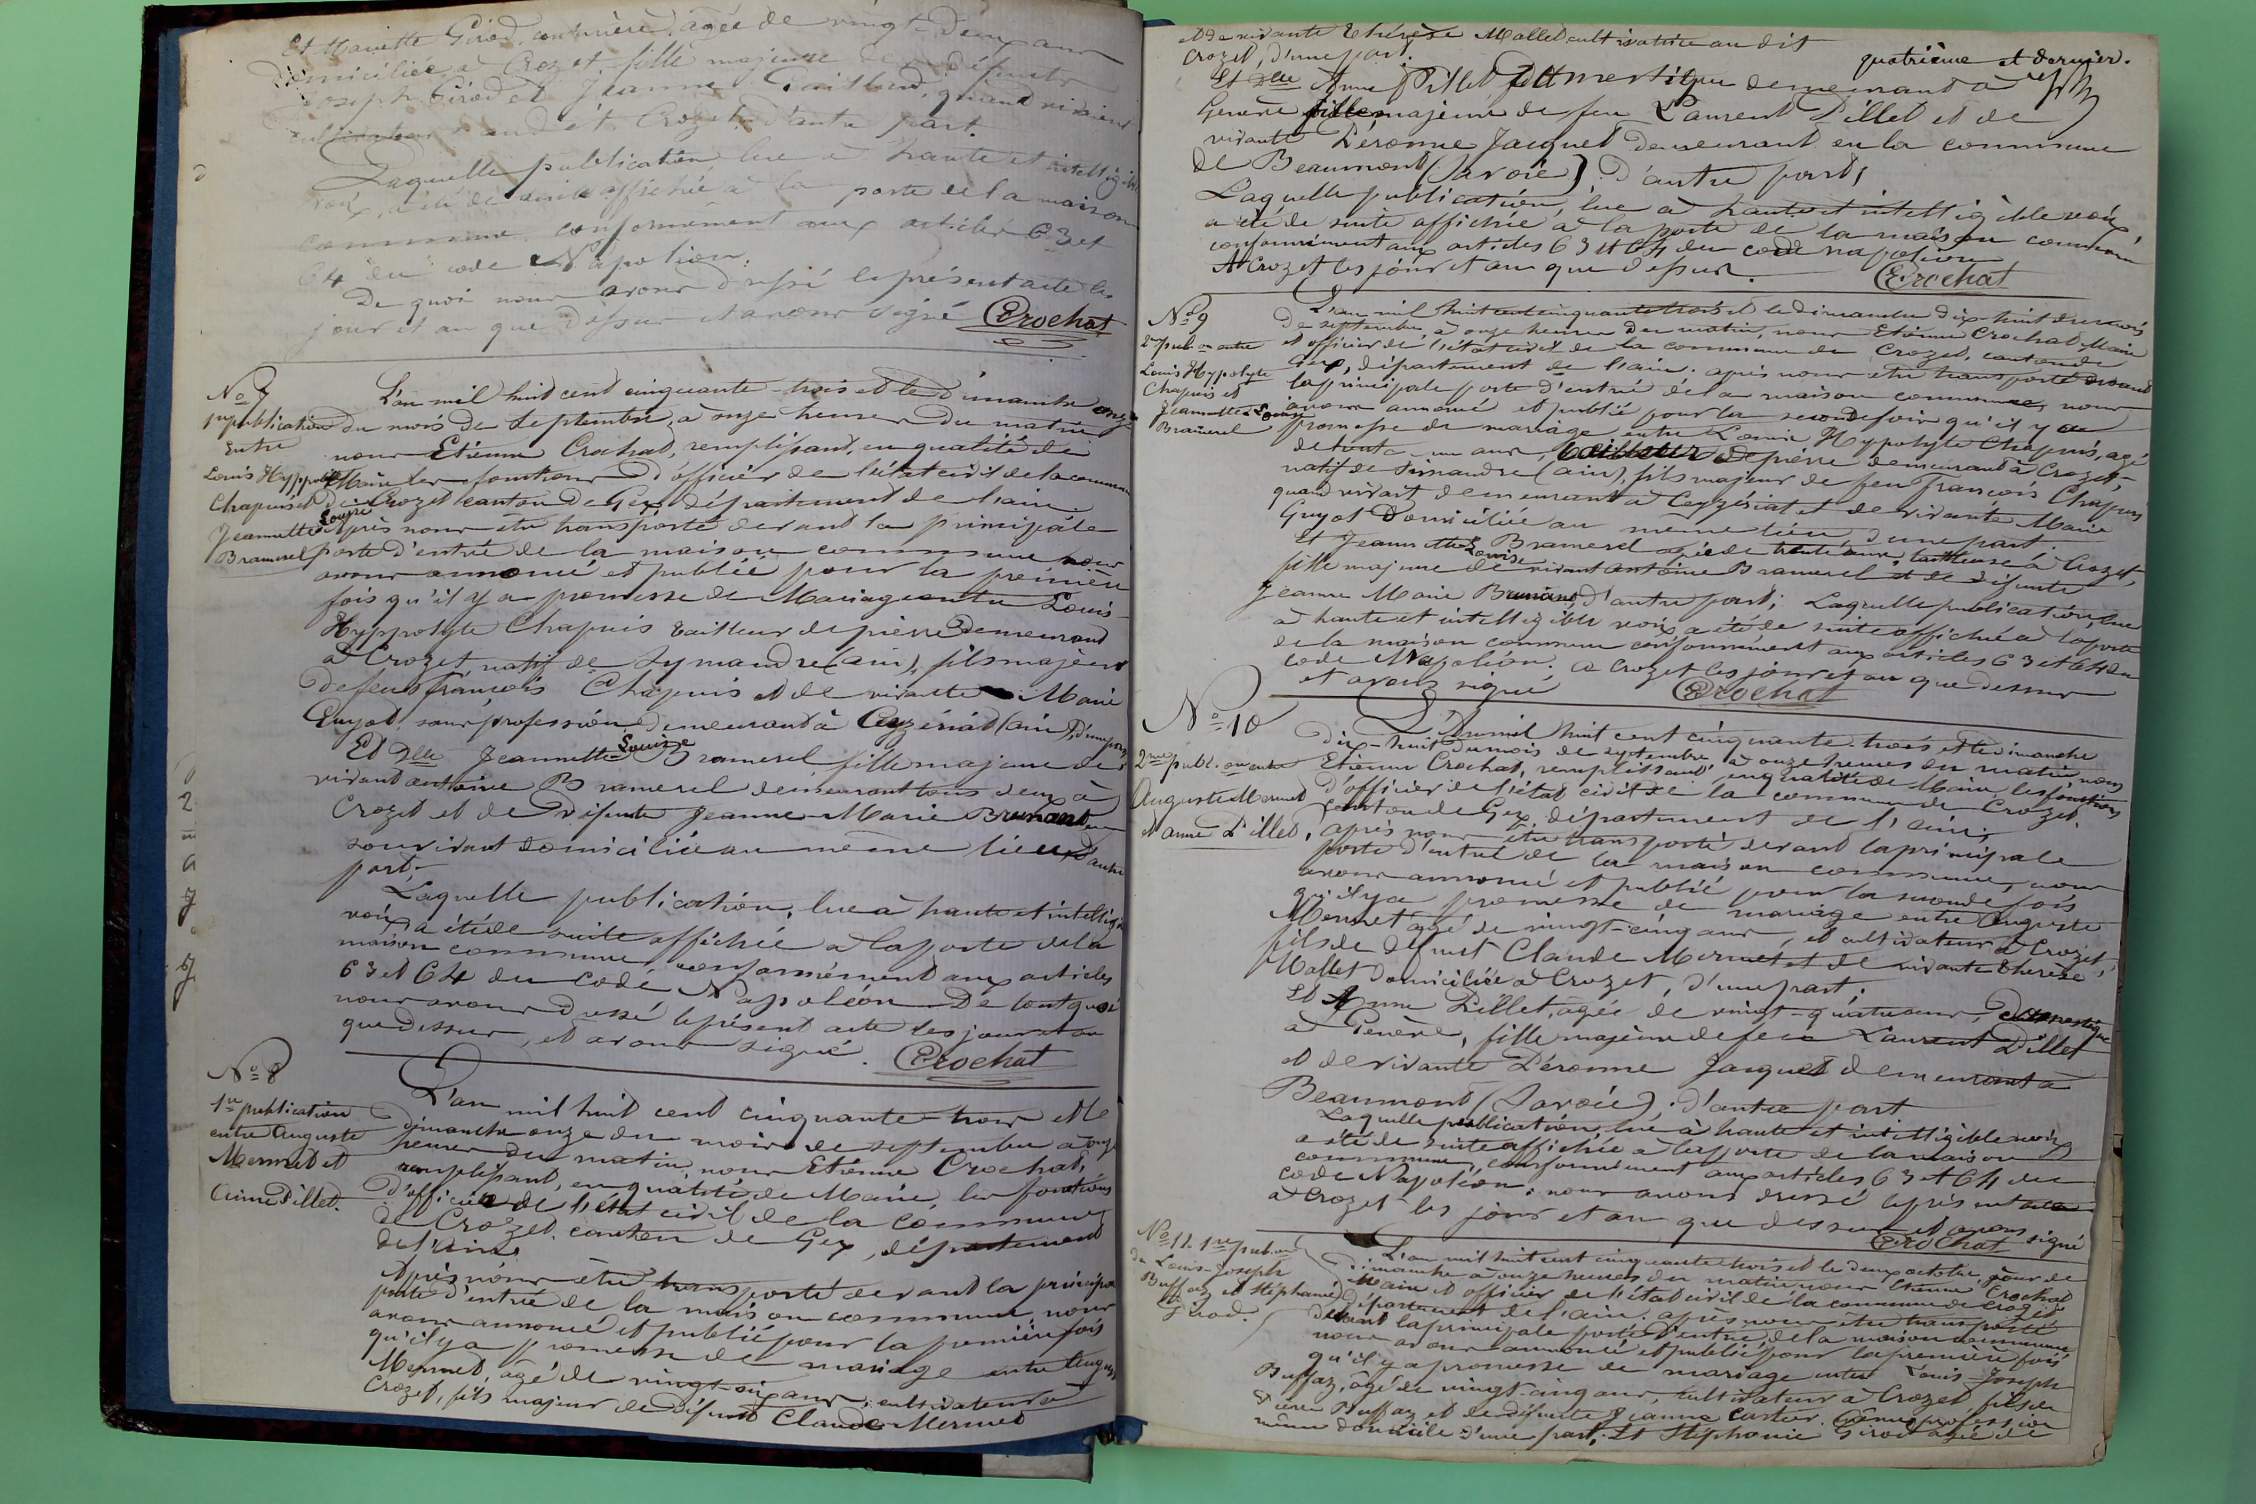 Et Mariette Girod, couturière, agée de vingt-deux ans
domiciliée à Crozet fille majeure de défunts
Joseph Girod et Jeanne quand vivaient
cultivateurs audit Crozet d'autre part.
Laquelle publication lue à haute et intelligible
voix, a été de suite affichée à la porte de la maison
commune, conformément aux articles 63 et
64 du code Napoléon.
De quoi nous avons dressé le présent acte les
jour et an que dessus et avons signé Crochat
No 7
1re publication
Entre
Louis Hyppolite
Chapuis et
Jeannette Louise
Bramerel
L'an mil huit cent cinquante-trois et le dimanche onze
du mois de septembre, à onze heures du matin
nous Etienne Crochat, remplissant, en qualité de
Maire les fonctions d'officier de l'état civil de la commune
de Crozet canton de Gex département de l'ain.
Après nous être transporté devant la principale
porte d'entrée de la maison commune nous
avons annoncé et publié pour la première
fois qu'il y a promesse de Mariage entre Louis
Hyppolyte Chapuis tailleur de pierre demeurant
à Crozet natif de Symandre (ain), fils majeur
de feu François Chapuis et de vivante Marie
Guyot sans profession demeurant à Ceyzériat (ain), d'une part
Et Dlle Jeannette Louise Bramerel fille majeure de
vivant antoine Bramerel demeurant tous deux à
Crozet et de défunte Jeanne-Marie Brunand en
son vivant domiciliée au même lieu d'autre
part,
Laquelle publication, lue à haute et intelligible
voix, a été de suite affichée à la porte de la
maison commune, conformément aux articles
63 et 64 du code Napoléon. De tout quoi
nous avons dressé le présent acte les jour et an
que dessus, et avons signé. Crochat
No 8
1re publication
entre Auguste
Mermet et
Anne Pillet.
L'an mil huit cent cinquante-trois et le
dimanche onze du mois de septembre à onze
heures du matin, nous Etienne Crochat,
remplissant, en qualité de Maire, les fonctions
d'officier de l'état civil de la commune
de Crozet, canton de Gex, département
de l'ain.
Après nous être transporté devant la principale
porte d'entrée de la maison commune, nous
avons annoncé et publié pour la première fois
qu'il y a promesse de mariage entre Auguste
Mermet, âgé de vingt-six ans, cultivateur à
Crozet, fils majeur de défunt Claude Mermet
et de vivante Thérèse Mallet cultivatrice au dit
Crozet, d'une part.
quatrième et dernier.
Et Dlle Anne Pillet Domestique demeurant à
Genève fille majeure de feu Laurent Pillet et de
vivante Péronne Jacquet demeurant en la commune
de Beaumont (Savoie) d'autre part,
Laquelle publication, lue à haute et intelligible voix,
a été de suite affichée à la porte de la maison commune
conformément aux articles 63 et 64 du code napoléon
A Crozet les jour et an que dessus. Crochat
No 9
2me pub.on entre
Louis Hypolyte
Chapuis et
Jeannette Louise
Bramerel
L'an mil huit cent cinquante trois et le dimanche dix-huit du mois
de septembre à onze heures du matin, nous Etienne Crochat Maire
et officier de l'état civil de la commune de Crozet, canton de
Gex, département de l'ain. après nous être transporté devant
la principale porte d'entrée de la maison commune, nous
avons annoncé et publié pour la seconde fois qu'il y a
promesse de mariage entre Louis Hypolyte Chapuis, agé
de trente-un ans, tailleur de pierre demeurant à Crozet,
natif de Simandre (ain), fils majeur de feu François Chapuis
quand vivait demeurant à Ceyzériat et de vivante Marie
Guyot domiciliée au meme lieu, d'une part.
Et Jeannette Louise Bramerel agée de trente ans, tailleuse à Crozet,
fille majeure de vivant antoine Bramerel et de défunte
Jeanne Marie Brunand, d'autre part; Laquelle publication, lue
à haute et intelligible voix, a été de suite affichée à la porte
de la maison commune conformément aux articles 63 et 64 du
code Napoléon. A Crozet les jour et an que dessus
et avons signé Crochat
No 10
2me publi.on entre
Auguste Mermet
et anne Pillet.
L'an mil huit cent cinquante-trois et le dimanche
dix-huit du mois de septembre à onze heures du matin nous
Etienne Crochat, remplissant, en qualité de Maire, les fonctions
d'officier de l'état civil de la commune de Crozet,
canton de Gex, département de l'ain,
après nous être transporté devant la principale
porte d'entrée de la maison commune, nous
avons annoncé et publié pour la seconde fois
qu'il y a promesse de mariage entre Auguste
Mermet agé de vingt-cinq ans, et cultivateur à Crozet,
fils de défunt Claude Mermet et de vivante Therèse
Mallet domiciliée à Crozet, d'une part.
Et Anne Pillet, agée de vingt-quatre ans, Domestique
à Genève, fille majeure de feu Laurent Pillet
et de vivante Péronne Jacquet demeurant à
Beaumont (Savoie), d'autre part
Laquelle publication, lue à haute et intelligible voix
a été de suite affichée à la porte de la maison
commune, conformément aux articles 63 et 64 du
code Napoléon. nous avons dressé le présent acte
à Crozet les jour et an que dessus et avons signé
Crochat
No 11. 1re pub.on
de Louis-Joseph
Buffaz et Stéphanie
Girod.
L'an mil huit cent cinquante trois et le deux octobre, jour de
dimanche à onze heures du matin, nous Etienne Crochat
Maire et officier de l'état civil de la commune de Crozet
département de l'ain. après nous être transporté
devant la principale porte d'entrée de la maison commune
nous avons annoncé et publié pour la première fois
qu'il y a promesse de mariage entre Louis Joseph
Buffaz, âgé de vingt-cinq ans, cultivateur à Crozet, fils de
Buffaz et de défunte Jeanne Cartier, même profession
même domicile d'une part; Et Stéphanie Girod agée de